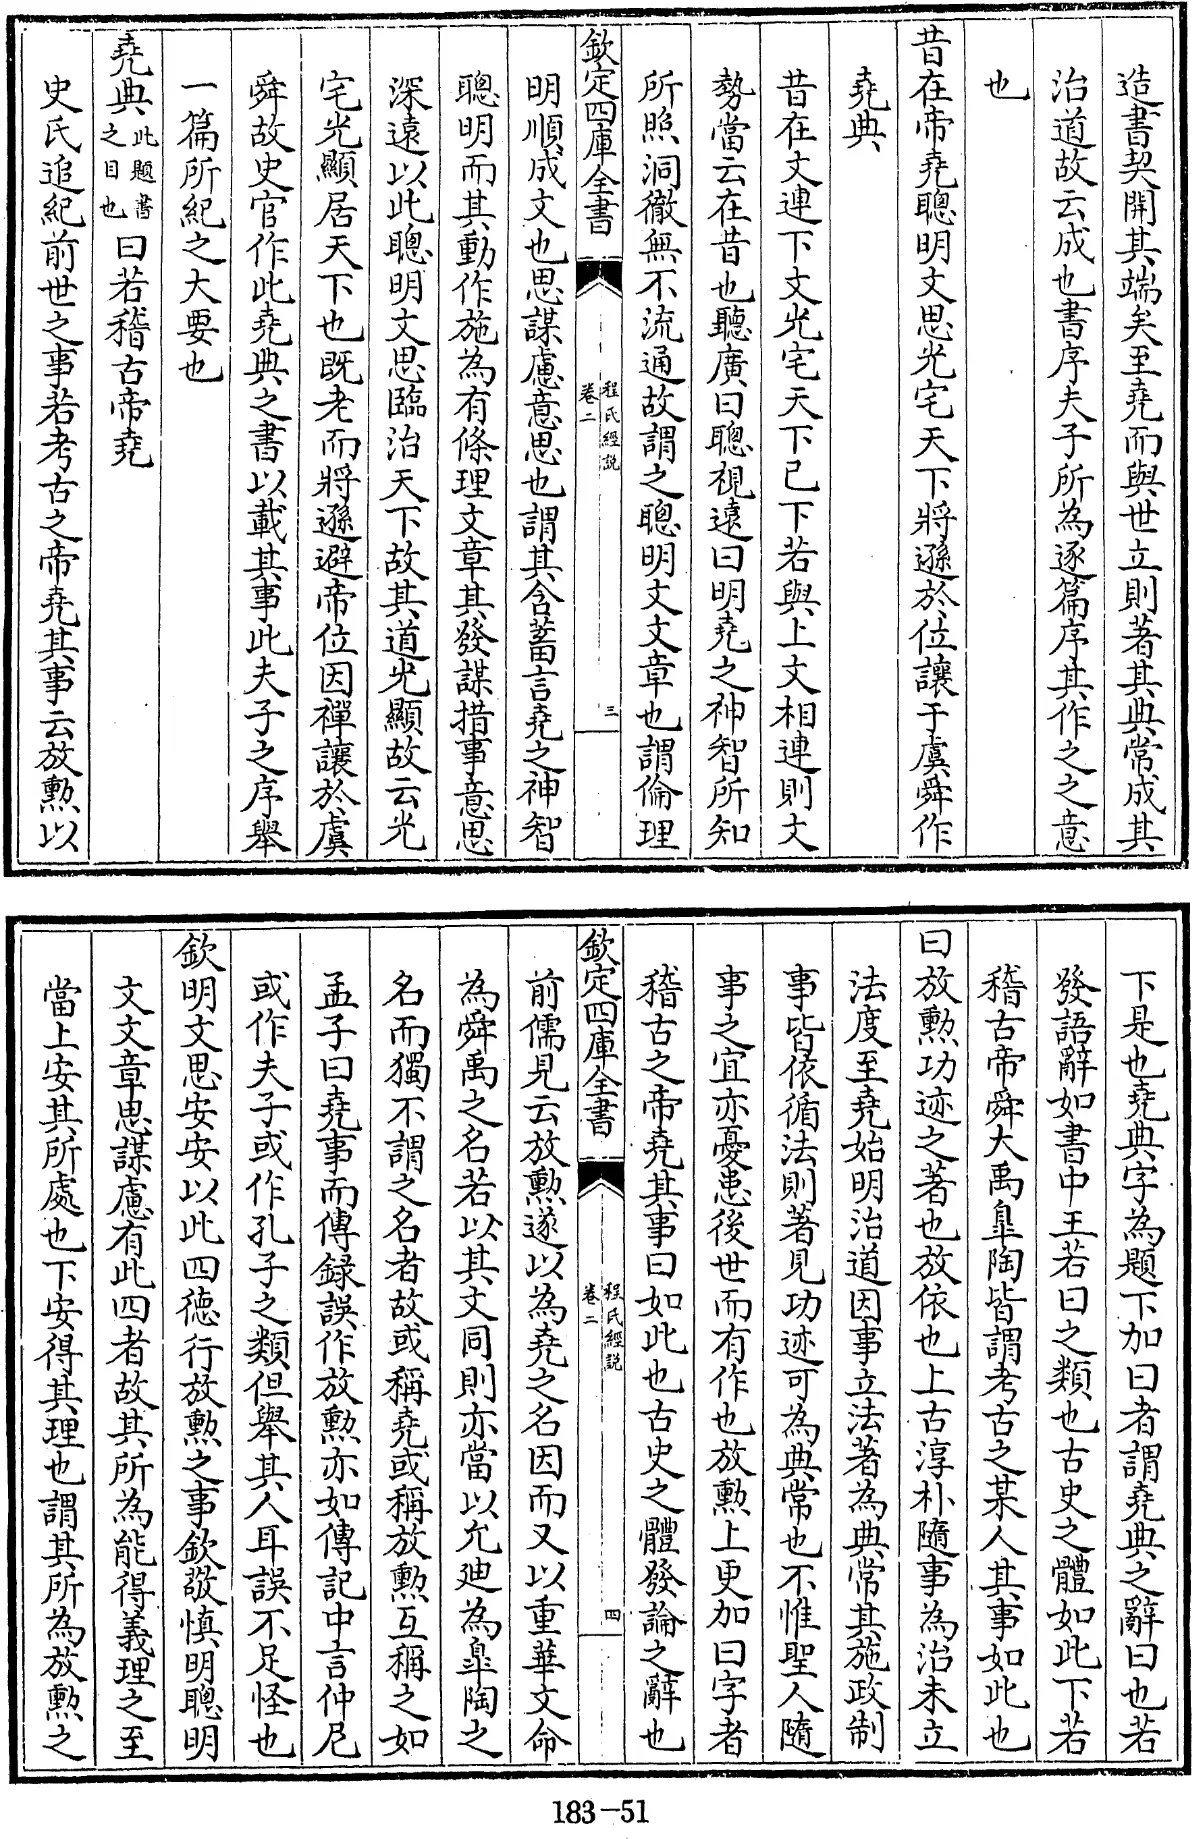 造書契開其端矣至堯而與世立則著其典常成其
治道故云成也書序夫子所為逐篇序其作之之意
也
昔在帝堯聰明文思光宅天下將遜於位讓于虞舜作
堯典
昔在文連下文光宅天下已下若與上文相連則文
勢當云在昔也聽廣曰聰視遠曰明堯之神智所知
所照洞徹無不流通故謂之聰明文文章也謂倫理
欽定四庫全書
程氏經説
卷二
三
明順成文也思謀慮意思也謂其含蓄言堯之神智
聰明而其動作施為有條理文章其發謀措事意思
深遠以此聰明文思臨治天下故其道光顯故云光
宅光顯居天下也既老而將遜避帝位因禪讓於虞
舜故史官作此堯典之書以載其事此夫子之序舉
一篇所紀之大要也
堯典此題書之目也曰若稽古帝堯
史氏追紀前世之事若考古之帝堯其事云放勲以
下是也堯典字為題下加曰者謂堯典之辭曰也若
發語辭如書中王若曰之類也古史之體如此下若
稽古帝舜大禹臯陶皆謂考古之某人其事如此也
曰放勲功迹之著也放依也上古淳朴隨事為治未立
法度至堯始明治道因事立法著為典常其施政制
事皆依循法則著見功迹可為典常也不惟聖人隨
事之宜亦憂患後世而有作也放勲上更加曰字者
稽古之帝堯其事曰如此也古史之體發論之辭也
欽定四庫全書
程氏經説
卷二
四
前儒見云放勲遂以為堯之名因而又以重華文命
為舜禹之名若以其文同則亦當以允迪為臯陶之
名而獨不謂之名者故或稱堯或稱放勲互稱之如
孟子曰堯事而傳録誤作放勲亦如傳記中言仲尼
或作夫子或作孔子之類但舉其人耳誤不足怪也
欽明文思安安以此四德行放勲之事欽敬慎明聰明
文文章思謀慮有此四者故其所為能得義理之至
當上安其所處也下安得其理也謂其所為放勲之
183-51